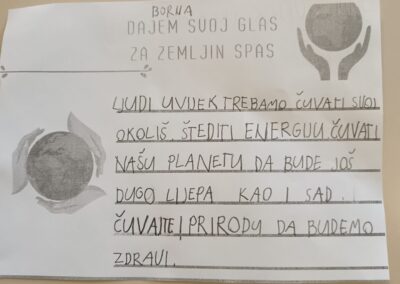 BORNA
DAJEM SVOJ GLAS
ZA ZEMLJIN SPAS
LJUDI UVIJEK TREBAMO ČUVATI SVOJ
OKOLIŠ, ŠTEDITI ENERGIJU ČUVATI
NAŠU PLANETU DA BUDE JOŠ
DUGO LIJEPA KAO I SAD.
ČUVAJTE PRIRODU DA BUDEMO
ZDRAVI.